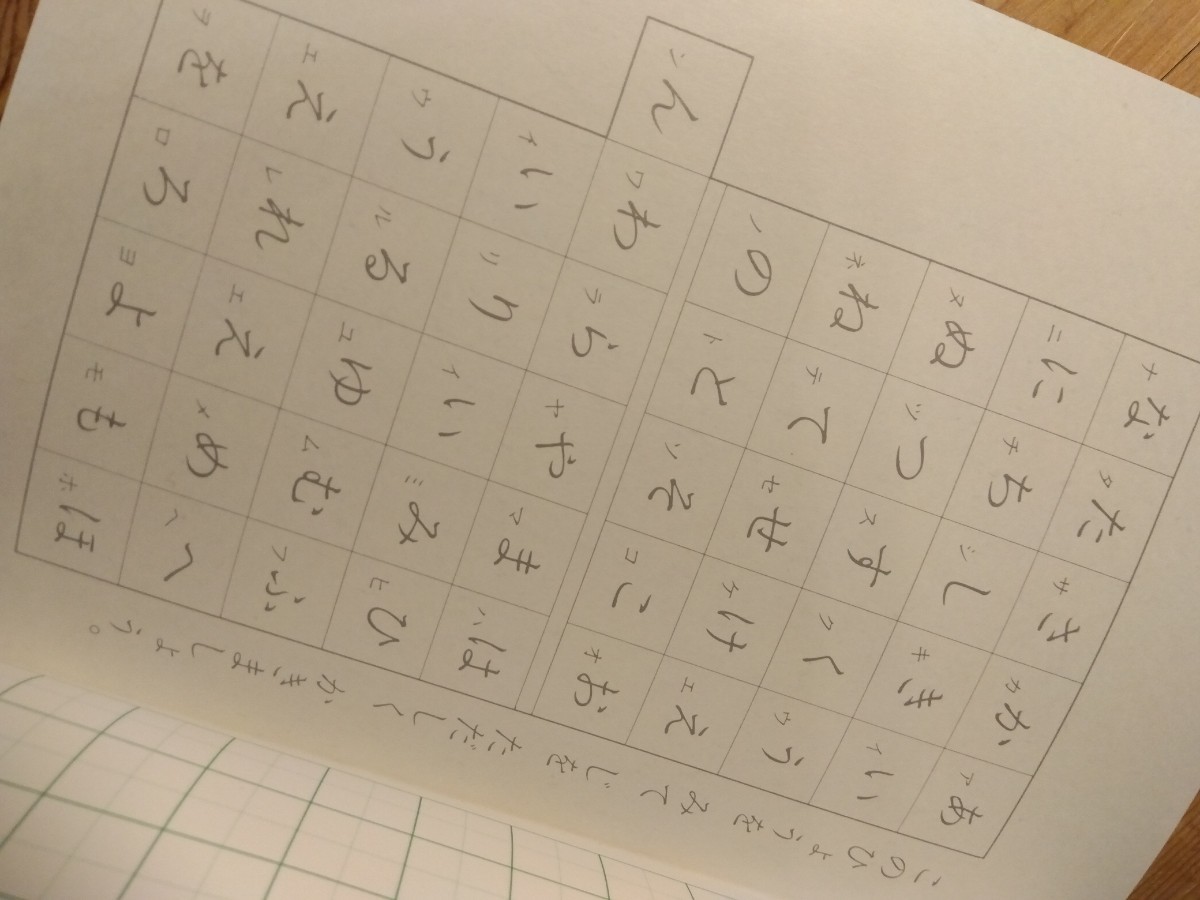 このひょうをみて じを ただしく かきましょう。
あいうえお
アイウエオ
かきくけこ
カキクケコ
さしすせそ
サシスセソ
たちつてと
タチツテト
なにぬねの
ナニヌネノ
はひふへほ
ハヒフヘホ
まみむめも
マミムメモ
やいゆえよ
ヤイユエヨ
らりるれろ
ラリルレロ
わいうえを
ワイウエヲ
ん
ン